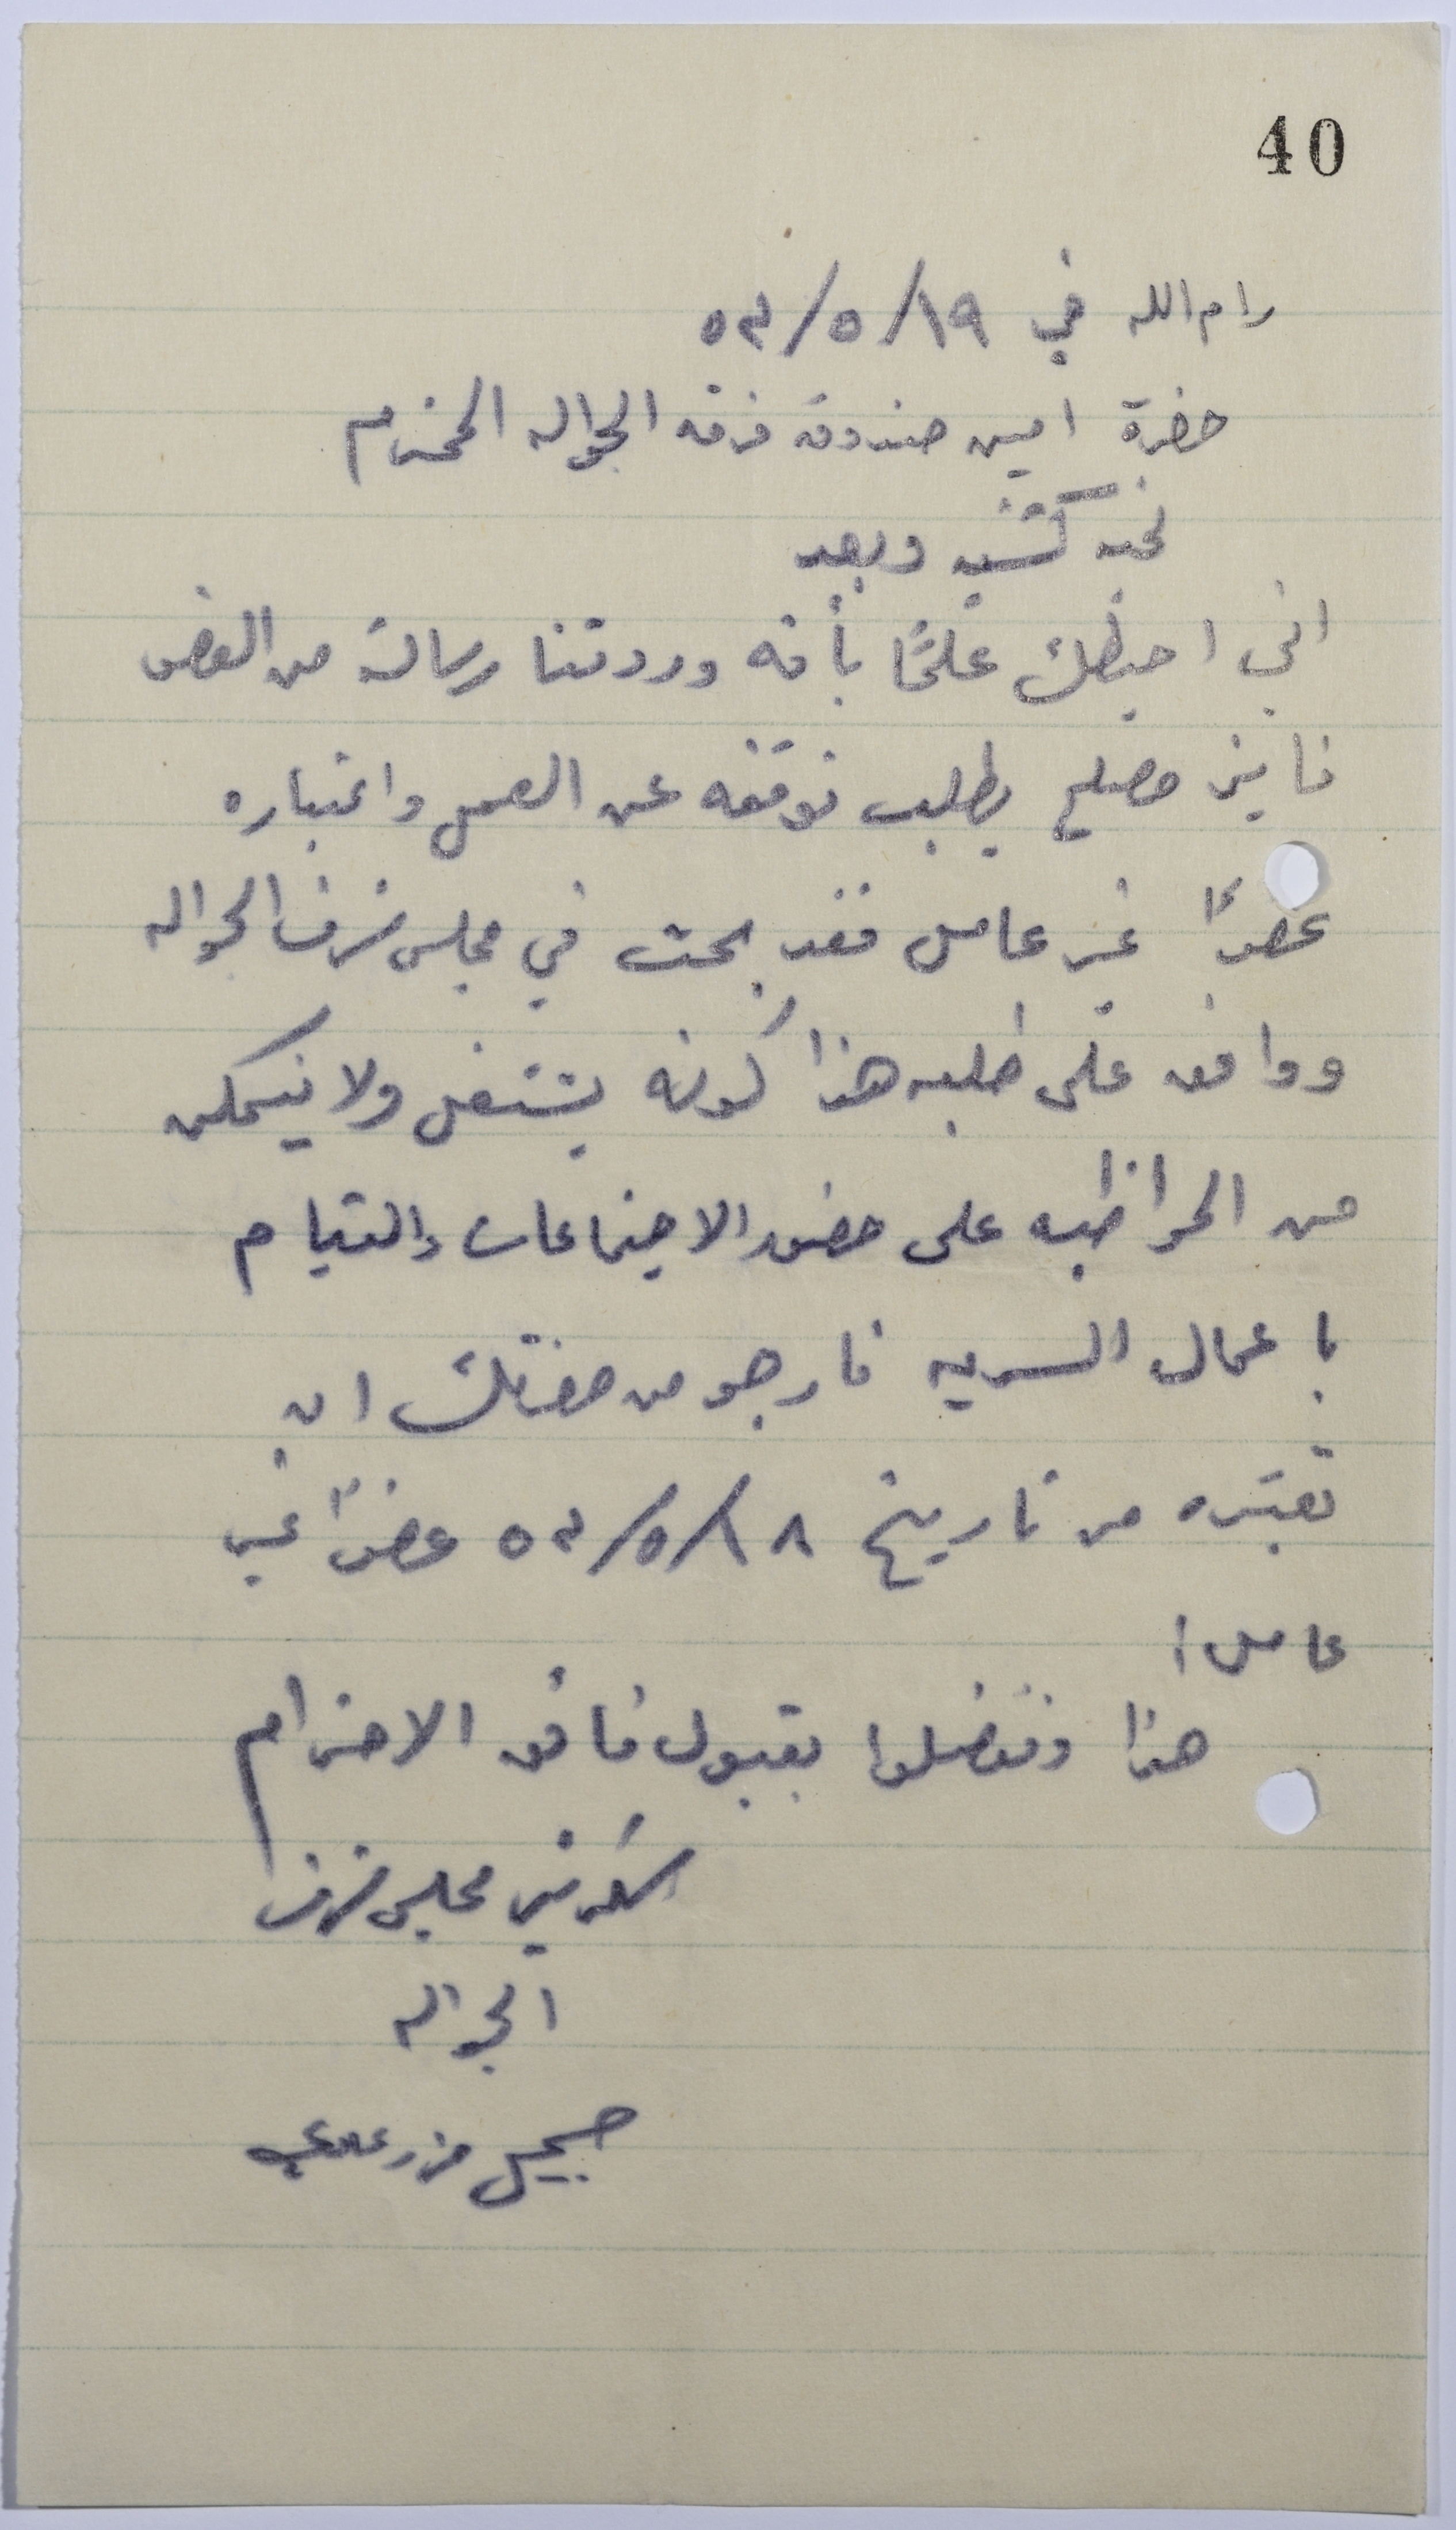 40
رام الله في ١٩/٥/٥٣
حضرة امين صندوق فرقة الجواله المحترم
تحيه كشفيه وبعد
اني احيطك علمًا بأنه وردتنا رسالة من العضو
فايز مصلح يطلب توقفه عن العمل واعتباره
عضوًا غير عامل فقد بحث في مجلس شرف الجواله
ووافق على طلبه هذا كونه يشتغل ولا يتمكن
من المواظبه على حضور الاجتماعات والقيام
باعمال السريه فارجو من حضرتك ان
تعتبره من تاريخ ١٨/٥/٥٣ عضوًا غير
عامل؛
هذا وتفضلوا بقبول فائق الاحترام
سكرتير مجلس شرف
الجواله